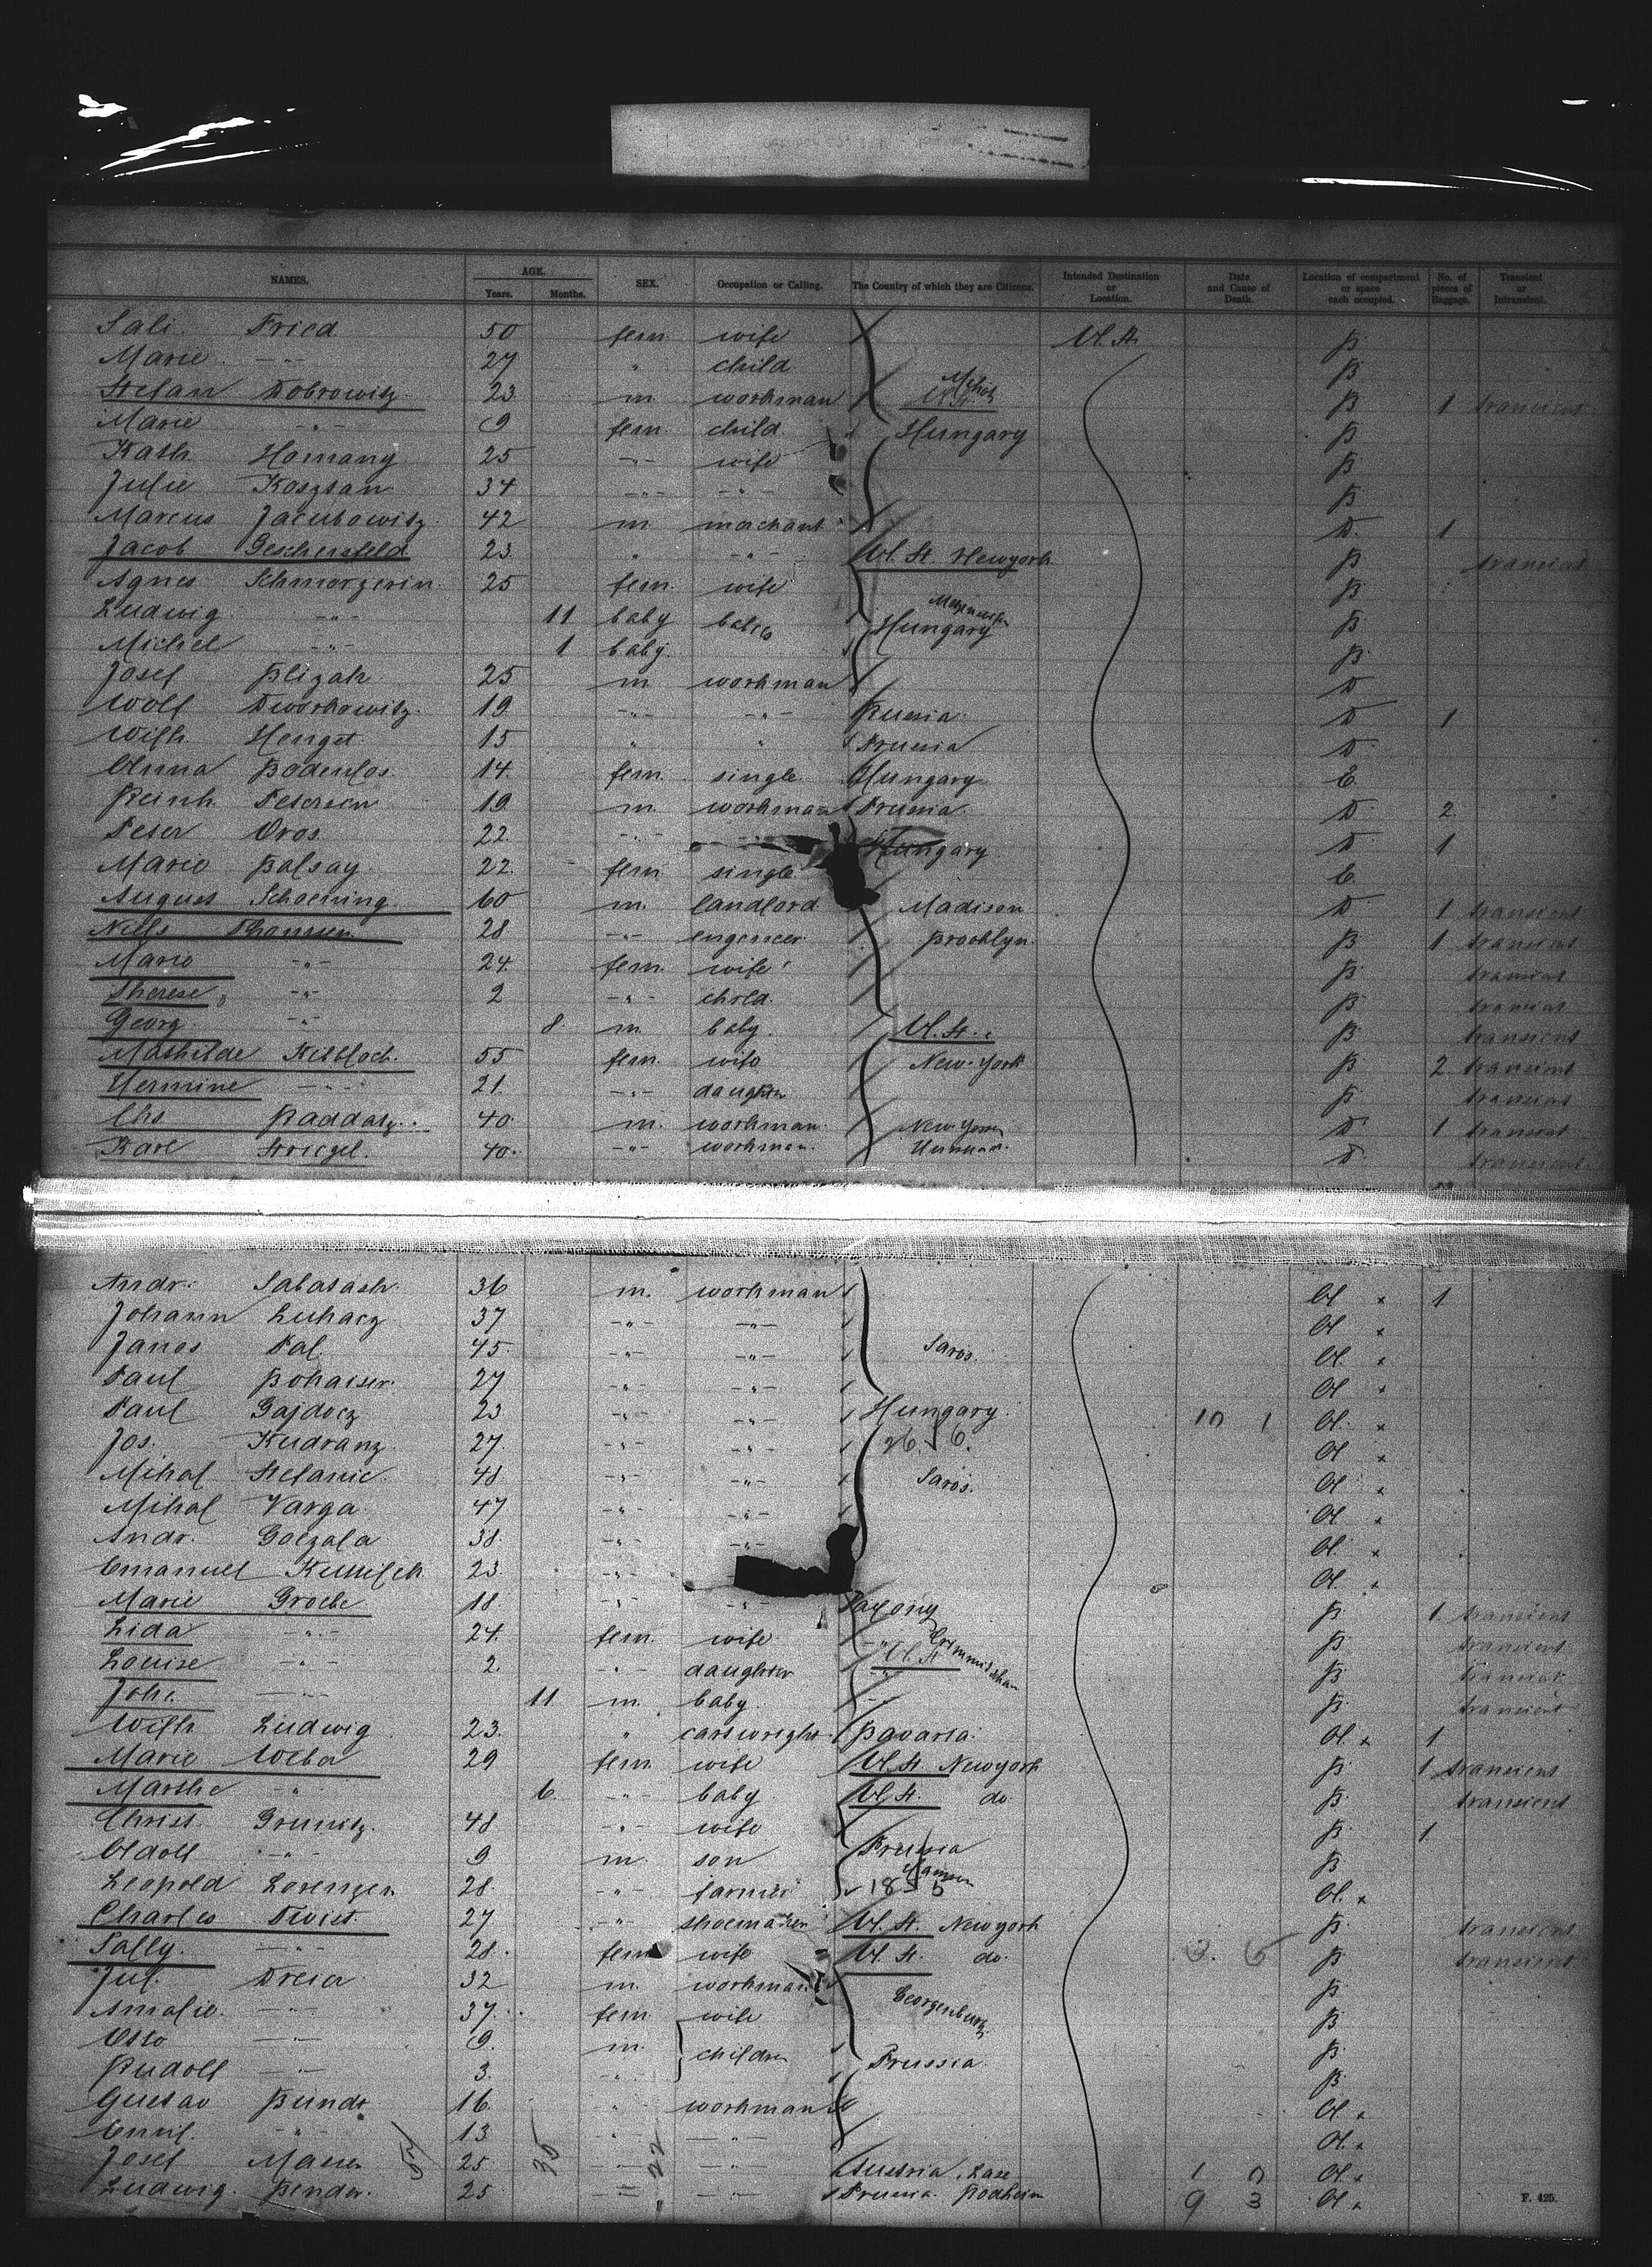 NAMES. AGE. Years. Months. SEX. Occupation or Calling. The Country of which they are Citizens. Intended Destination or Location. Date and Cause of Death. Location of compartment or space each occupied. No. of pieces of Baggage. Transient or Intransient.
Sali Fried 50 fem. wife U. St. B.
Marie -"- 27 " child B.
Stefan Dobrowitz 23 m workman U. St. B 1 transient
Marie -"- 9 fem child Hungary B.
Kath Homany 25 -"- wife B.
Julie Koszsan 34 -"- -"- B.
Marcus Jacubowitz 42 m. merchant D. 1
Jacob 23 " -"- U. St. Newyork B. transient
Agnes Schmorzerin 25 fem. wife B.
Ludwig -"- 11 baby Hungary B.
Michel -"- 1 baby. B.
Josef Blizak 25 m workman D
Wolf Dworkowitz 19 -"- -"- Russia. D 1
Wilh. Henget 15 " " Prussia D.
Anna Bodenlos. 14. fem. single. Hungary C.
Reinh. Petersen 19. m. workman Prussia. D. 2.
Peter Oros. 22. -"- Hungary D 1
Marie Balsay 22. fem single. C.
August Schoening 60 m. landlord Madison D 1 transient
Nills Thomsen 28 -"- engeneer. Brooklyn. B 1 transient
Marie -"- 24. fem. wife B. transient
Therese -"- 2 -"- child. B. transient
Georg -"- 8. m. baby. U. St. B transient
Mathilde Kisbloch. 55 fem. wife New-York B 2 transient
Hermine -"- 21. -"- daughter B. transient
Chs Raddatz. 40. m. workman. New York D. 1 transient
Karl Striegel. 40. -"- workman. D. transient
Andr. Sabatash. 36 m. workman U × 1
Johann Luhacz 37 -"- -"- U ×
Janos Pal. 45 -"- -"- Saros. U. ×
Paul Bohaiser. 27 -"- -"- U ×
Paul Gajdocz 23 -"- -"- Hungary. 10 1 U. ×
Jos. Kudranz 27. -"- -"- U ×
Mihal Stefanic 48 -"- -"- Saros. U ×
Mihal Varga. 47 -"- -"- U. ×
Andr. Goczala 38. -"- -"- U. ×
Emanuel 23. -"- U. ×
Marie Groebe 18 -"- -"- Saxony B. 1. transient
Lida -"- 24. fem. wife -"- Crimmitschau B. transient
Louise -"- 2. -"- daughter U. St B. transient
Joh. -"- 11 m. baby. -"- B. transient
Wilh Ludwig 23. " cartwright. Bavaria. U. × 1
Marie Weber 29 fem. wife U. St. Newyork B. 1 transient
Marthe " 6. -"- baby U. St. do. B. transient
Christ. Grunitz. 48 -"- wife B. 1.
Adolf -"- 9 m. son Prussia B.
Leopold Lorenzen 28. -"- farmer U. ×
Charles Twist. 27 -"- shoemaker U. St. Newyork B. transient
Sally. -"- 28. fem wife U. St. do. B. transient
Jul. Dreier 32 m. workman B.
Amalie. -"- 37. fem. wife Georgenburg. B.
Otto -"- 9. m. children B.
Rudolf -"- 3. -"- Prussia B.
Gustav Bundt 16. " workman U. ×
Emil. -"- 13 -"- -"- U. ×
Josef Maurer 25 -"- -"- Austria. U. ×
Ludwig. Bender. 25 -"- -"- Prussia. Rodheim 9 3 U. ×
F. 425.